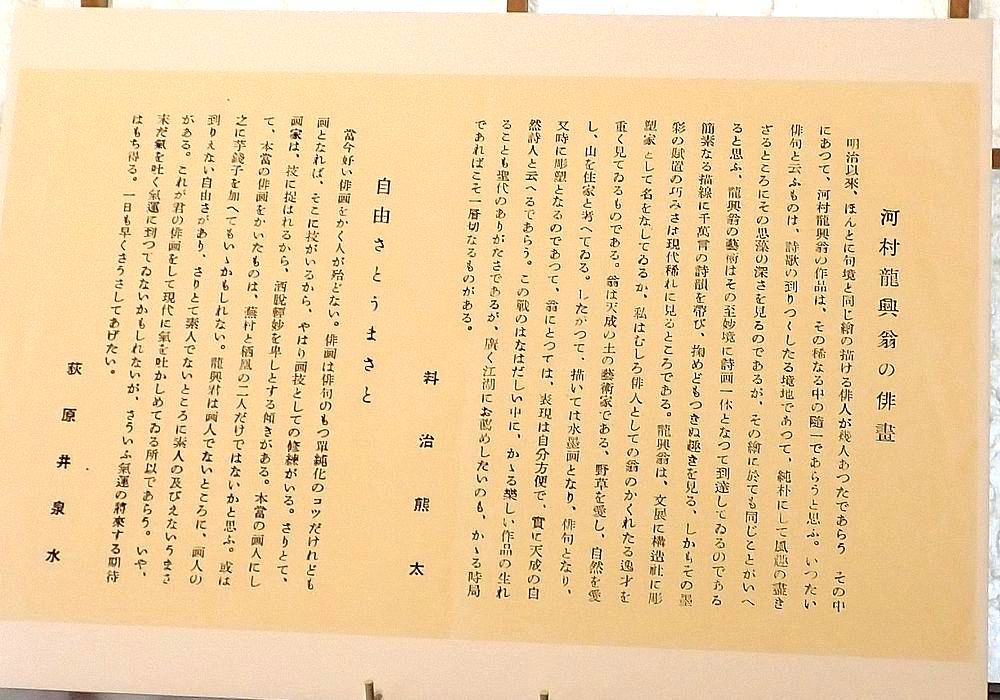 河村龍興翁の俳畫
明治以來、ほんとに句境と同じ繪の描ける俳人が幾人あつたであらう その中
にあつて、河村龍興翁の作品は、その稀なる中の隨一であらうと思ふ。いつたい
俳句と云ふものは、詩歌の到りつくしたる境地であつて、純朴にして風趣の盡き
ざるところにその思藻の深さを見るのであるが、その繪に於ても同じことがいへ
ると思ふ、龍興翁の藝術はその至妙境に詩画一体となつて到達してゐるのである
簡素なる描線に千萬言の詩韻を帶び、掬めどもつきぬ趣きを見る、しかもその墨
彩の賦置の巧みさは現代稀れに見るところである。龍興翁は、文展に構造社に彫
塑家として名をなしてゐるか、私はむしろ俳人としての翁のかくれたる逸才を
重く見てゐるものである。翁は天成の土の藝術家である、野草を愛し、自然を愛
し、山を住家と考へてゐる。したがつて、描いては水墨画となり、俳句となり、
又時に彫塑となるのであつて、翁にとつては、表現は自分方便で、實に天成の自
然詩人と云へるであらう。この戰のはなはだしい中に、かゝる樂しい作品の生れ
ることも聖代のありがたさであるが、廣く江湖にお薦めしたいのも、かゝる時局
であればこそ一層切なるものがある。
料治熊太
自由さとうまさと
當今好い俳画をかく人が殆どない。俳画は俳句のもつ單純化のコツだけれども
画となれば、そこに技がいるから、やはり画技としての修練がいる。さりとて、
画家は、技に捉はれるから、洒脫輕妙を卑しとする傾きがある。本當の画人にし
て、本當の俳画をかいたものは、蕪村と栖鳳の二人だけではないかと思ふ。或は
之に芋錢子を加へてもいゝかもしれない。龍興君は画人でないところに、画人の
到りえない自由さがあり、さりとて素人でないところに素人の及びえないうまさ
がある。これが君の俳画をして現代に氣を吐かしめてゐる所以であらう。いや、
未だ氣を吐く氣運に到つてゐないかもしれないが、さういふ氣運の將來する期待
はもち得る。一日も早くさうさしてあげたい。
荻原井泉水